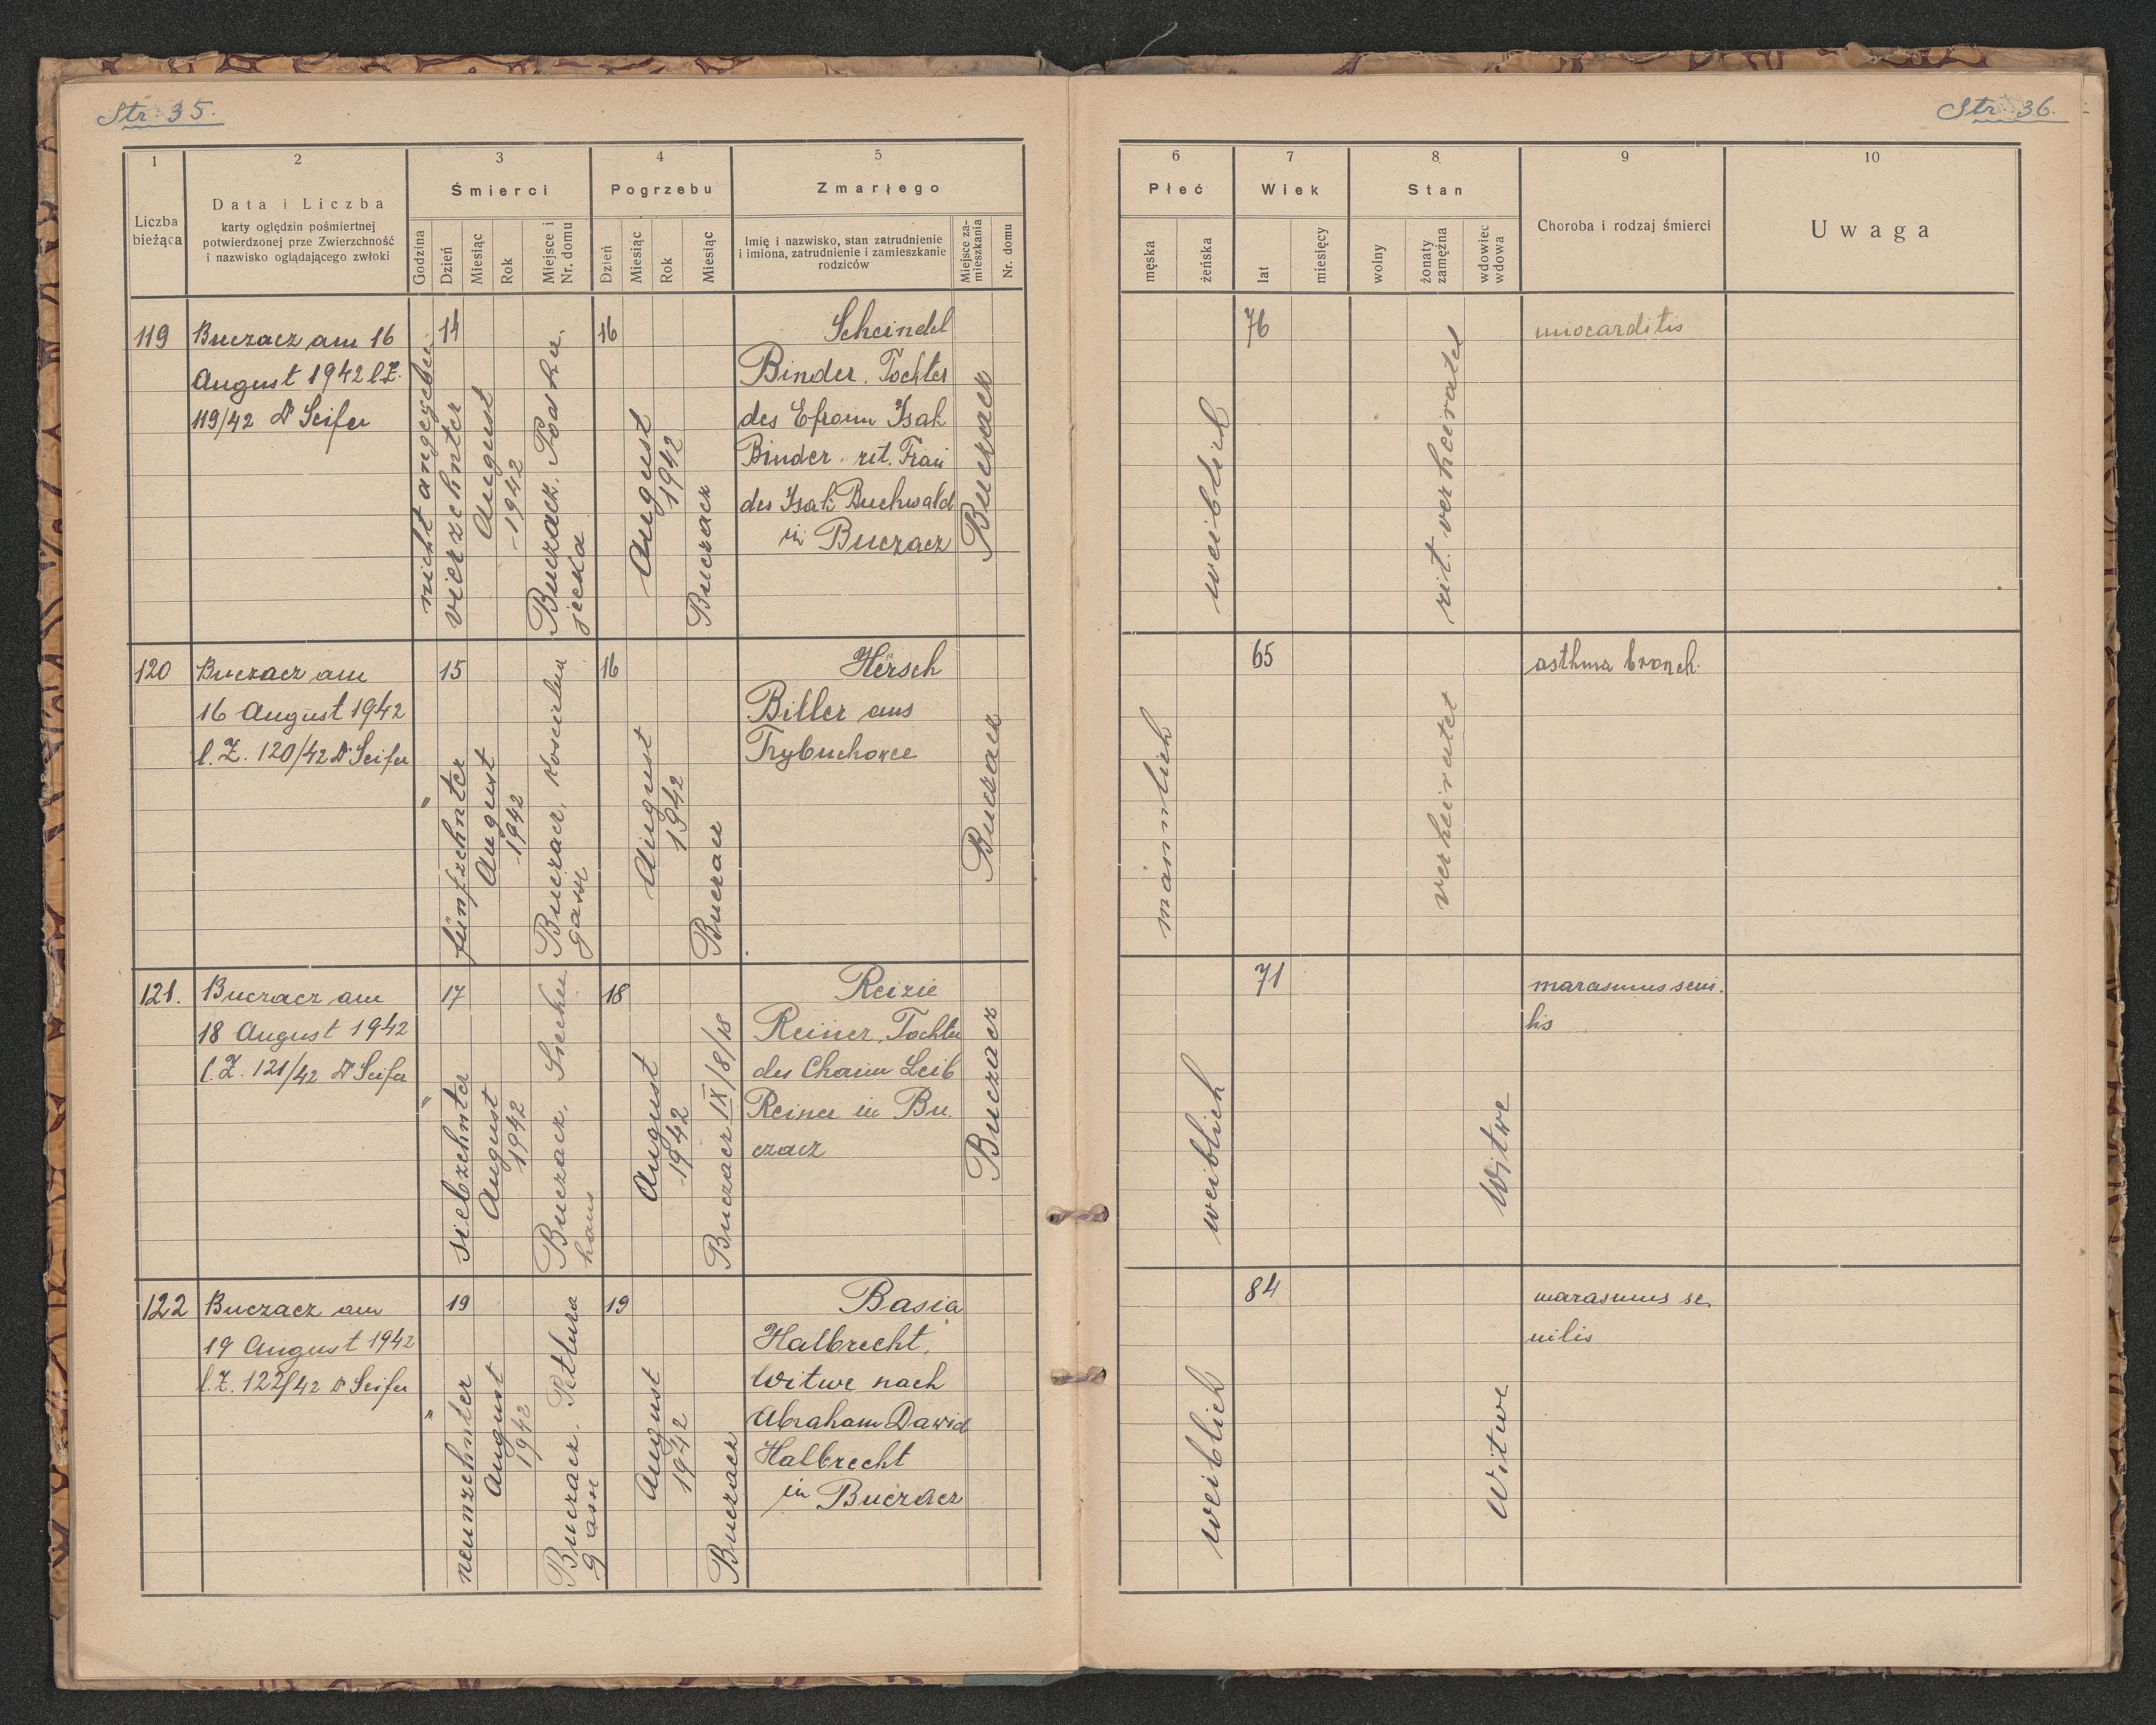 Str. 35.
1
2
3
4
5
Liczba bieżąca
Data i Liczba
karty oględzin pośmiertnej
potwierdzonej prze Zwierzchność
i nazwisko oglądającego zwłoki
Śmierci
Godzina
Dzień
Miesiąc
Rok
Miejsce i
Nr. domu
Pogrzebu
Dzień
Miesiąc
Rok
Miesiąc
Zmarłego
Imię i nazwisko, stan zatrudnienie
i imiona, zatrudnienie i zamieszkanie
rodziców
Miejsce za-
mieszkania
Nr. domu
119
Buczacz am 16
August 1942 l.Z.
119/42 Dr Seifer
nicht angegeben
14
vierzehnter
August
1942
Buczacz, Podha
jecka
16
August
1942
Buczacz
Scheindel
Binder, Tochter
des Efroim Isak
Binder rit. Frau
des Isak Buchwald
in Buczacz
Buczacz
120
Buczacz am
16 August 1942
l.Z. 120/42 Dr Seifer
"
15
fünfzehnter
August
1942
Buczacz,
gasse
16
August
1942
Buczacz
Hersch
Biller aus
Trybuchowce
Buczacz
121.
Buczacz am
18 August 1942
l.Z. 121/42 Dr Seifer
"
17
siebzehnter
August
1942
Buczacz, Siechen
haus
18
August
1942
Buczacz IX/8/18
Reizie
Reiner, Tochter
des Chaim Leib
Reiner in Bu.
czacz
Buczacz
122
Buczacz am
19 August 1942
l.Z. 122/42 Dr Seifer
"
19
neunzehnter
August
1942
Buczacz. Petlura
gasse
19
August
1942
Buczacz
Basia
Halbrecht,
Witwe nach
Abraham Dawid
Halbrecht
in Buczacz
Str. 36.
6
7
8
9
10
Płeć
męska
żeńska
Wiek
lat
miesięcy
Stan
wolny
żonaty
zamężna
wdowiec
wdowa
Choroba i rodzaj śmierci
Uwaga
weiblich
76
rit. verheiratet
miocarditis
männlich
65
verheiratet
asthma bronch.
weiblich
71
Witwe
marasmus seni.
lis
weiblich
84
Witwe
marasmus se.
nilis